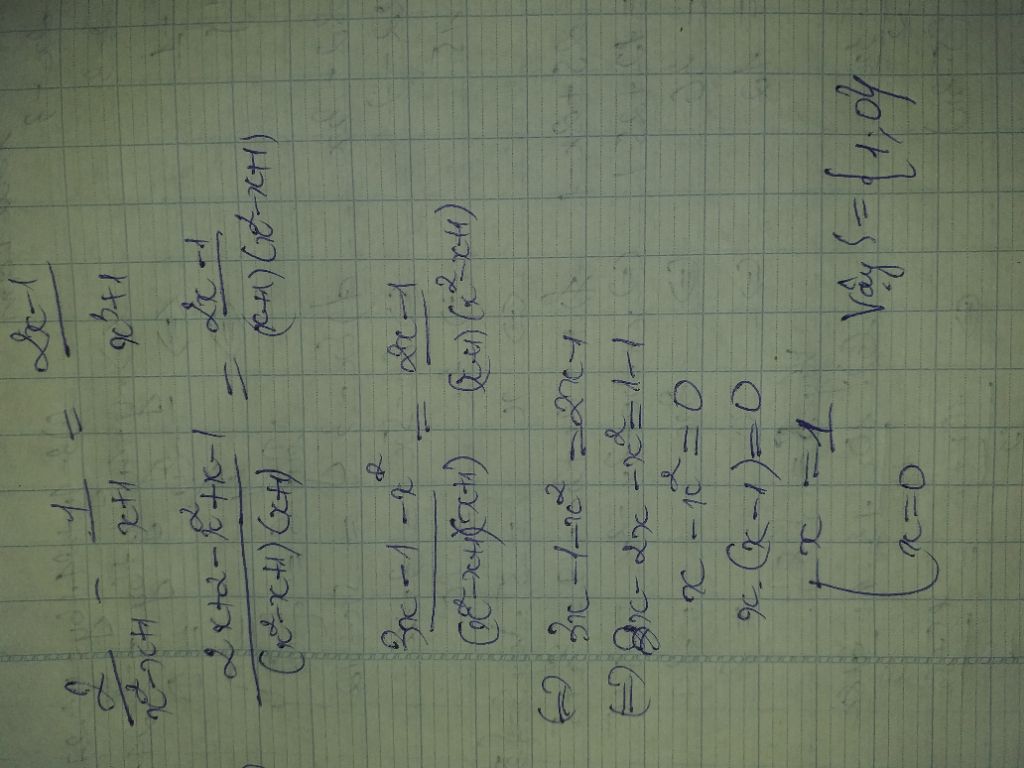 2/(x²-x+1) - 1/(x+1) = (2x-1)/(x³+1)
(2x+2-x²+x-1)/((x²-x+1)(x+1)) = (2x-1)/((x+1)(x²-x+1))
(3x-1-x²)/((x²-x+1)(x+1)) = (2x-1)/((x+1)(x²-x+1))
(=) 3x-1-x² = 2x-1
(=) 3x-2x-x² = 1-1
x-x² = 0
x.(x-1) = 0
x = 1
x = 0
Vậy S = {1; 0}